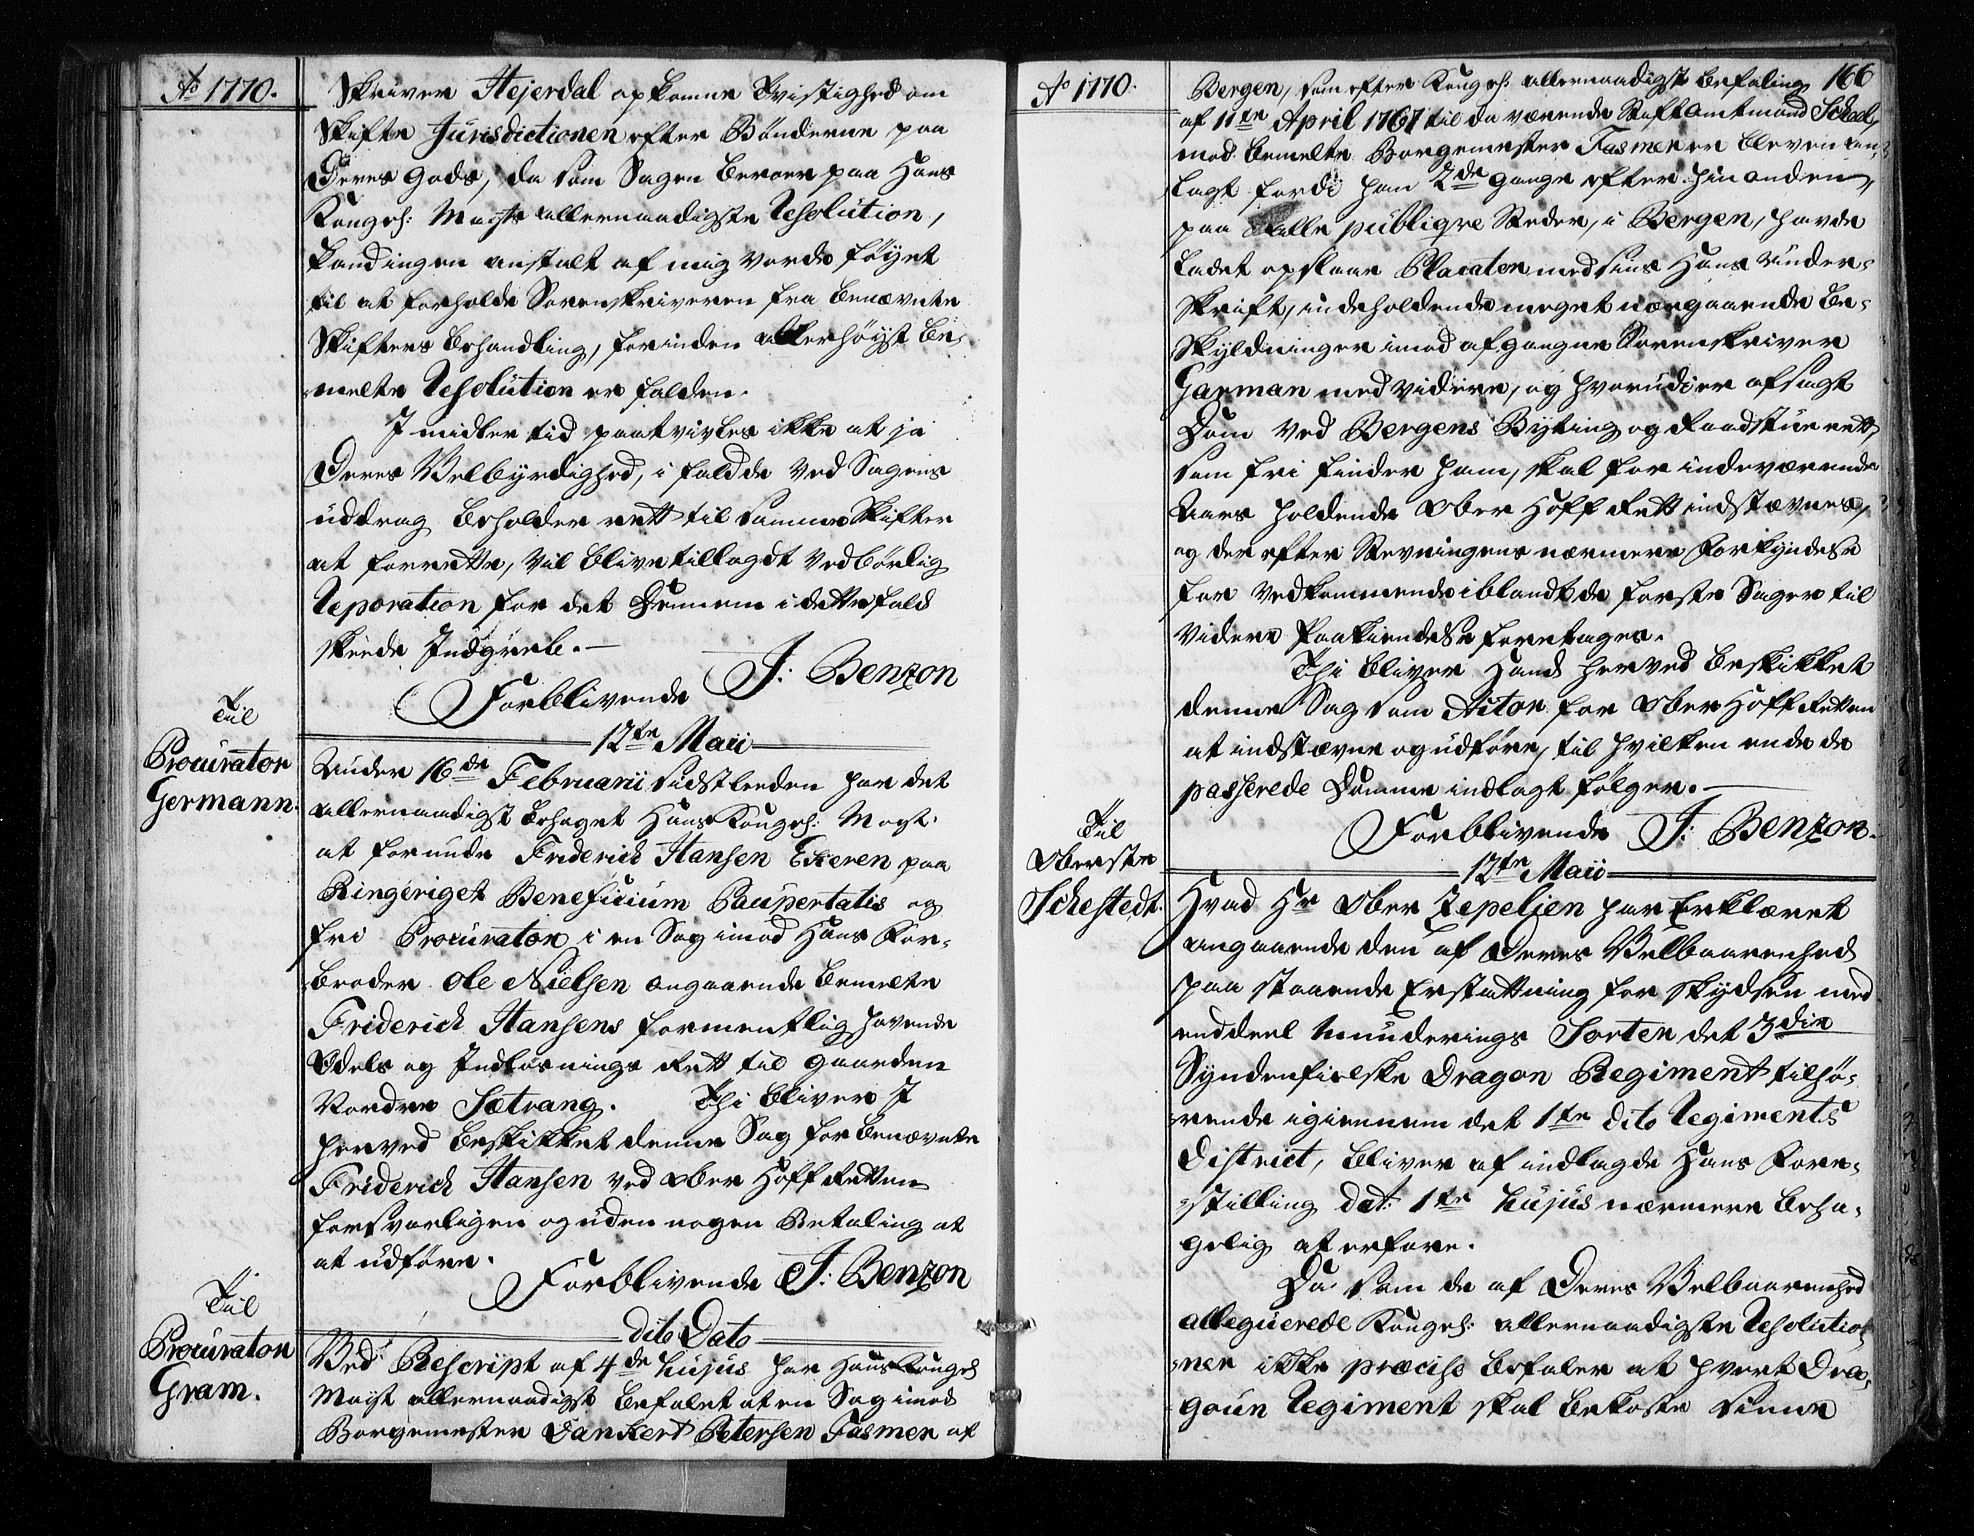 Ao 1770.
Skriver Hejerdal opkomne Tvistighed om
Skifte Jurisdictionen efter Bønderne paa
Deres Gods, da som Sagen beroer paa Hans
Kongel: Mayts allernaadigste Resolution,
kand ingen anstalt af mig vorde føyet
til at forholde Sorenskriveren fra benævnte
Skifters behandling, forinden allerhøyst be-
melte Resolution er falden.
I midler tid paatvivles ikke at jo
Deres Velbyrdighed, i fald de ved Sagens
uddrag beholder rett til samme Skifter
at forrette, vil blive tillagdt vedbørlig
Reparation for det Hennem i dette fald
skeede Indgreb.
Forblivende J: Benzon
12te Maii
Til
Procurator
Germann.
Under 16de Februarii sidstleeden har det
allernaadigst behaget Hans Kongel: Mayt:
at forunde Friderich Hansen Ekeren paa
Ringeriget Beneficium Paupertatis og
fri Procurator i en Sag imod Hans Far-
broder Ole Nielsen angaaende bemelte
Friderich Hansens formentlig havende
Odels og Indløsnings Rett til gaarden
Nordre Sætrang. Thi bliver I
herved beskikket denne Sag for benævnte
Friderich Hansen ved Ober Hoff Retten
forsvarligen og uden nogen Betaling at
at udføre.
Forblivende J: Benzon
dito Dato
Til
Procurator
Gram.
Ved Rescript af 4de hujus har Hans Kongel
Mayt allernaadigst befalet at en Sag imod
Borgemester Dankert Petersen Fasmer af
Ao 1770.
166
Bergen, som efter Kongel: allernaadigst befaling
af 11te April 1767 til da værende Stiftamtmand Scheel,
mod bemelte Borgemester Fasmer er bleven an-
lagt fordi han 2de gange efter hinanden,
paa alle publiqve Steder, i Bergen, havde
ladet opslaae Placater med sine Hans Under-
skrift, indeholdende meget nærgaaende be-
skyldninger imod afgangne Sorenskriver
Garman med videre, og hvorudi er afsagt
Dom ved Bergens Byting og Raadstue rett,
som fri finder ham, skal for indeværende
Aars holdende Ober Hoff Rett indstævnes,
og der efter Stevningens nærmere Forkyndelse
for Vedkommende iblandt de første Sager til
videre Paakiendelse foretages.
Thi bliver Hand herved beskikket
denne Sag som Actor for Ober Hoff Retten
at indstævne og udføre, til hvilken ende de
passerede Domme indlagt følger.
Forblivende J: Benzon.
12te Maii
Til
Oberste
Schestedt.
Hvad Hr Ober Zepelien har Erklæret
angaaende den af Deres Velbaarenhed
paa staaende Erstattning for skydsen med
endeel Munderings Sorter det 3die
Syndenfielske Dragon Regiment tilhø-
rende igiennem det 1te dito Regiments
District, bliver af indlagde Hans Fore-
stilling dat: 1te hujus nærmere beha-
gelig at erfare.
Da som de af Deres Velbaarenhed
alleguerede Kongel: allernaadigste Resolutio-
ner ikke præcise befaler at hvert Dra-
goun Regiment skal bekoste sinne